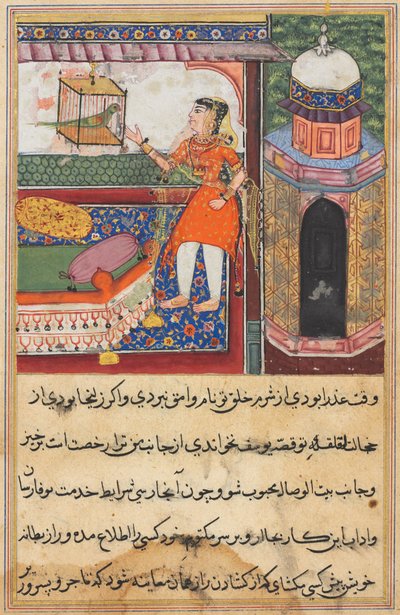 وقت عذرا بودی از شرم خلق تو نام وامق نبردی و اگر زلیخا بودی از
خجالت لقلقه تو قصه یوسف نخواندی از جانب من ترا رخصت است برخیز
و جانب بیت الوصال محبوب شو و چون آنجا رسی شرایط خدمت بوفا رسان
و اداب این کار بجا ار و بر سر مکتوم خود کسی را اطلاع مده و راز بطانه
خویش پیش کسی مکشای که از کشادن راز همان معاینه شود که تاجر و